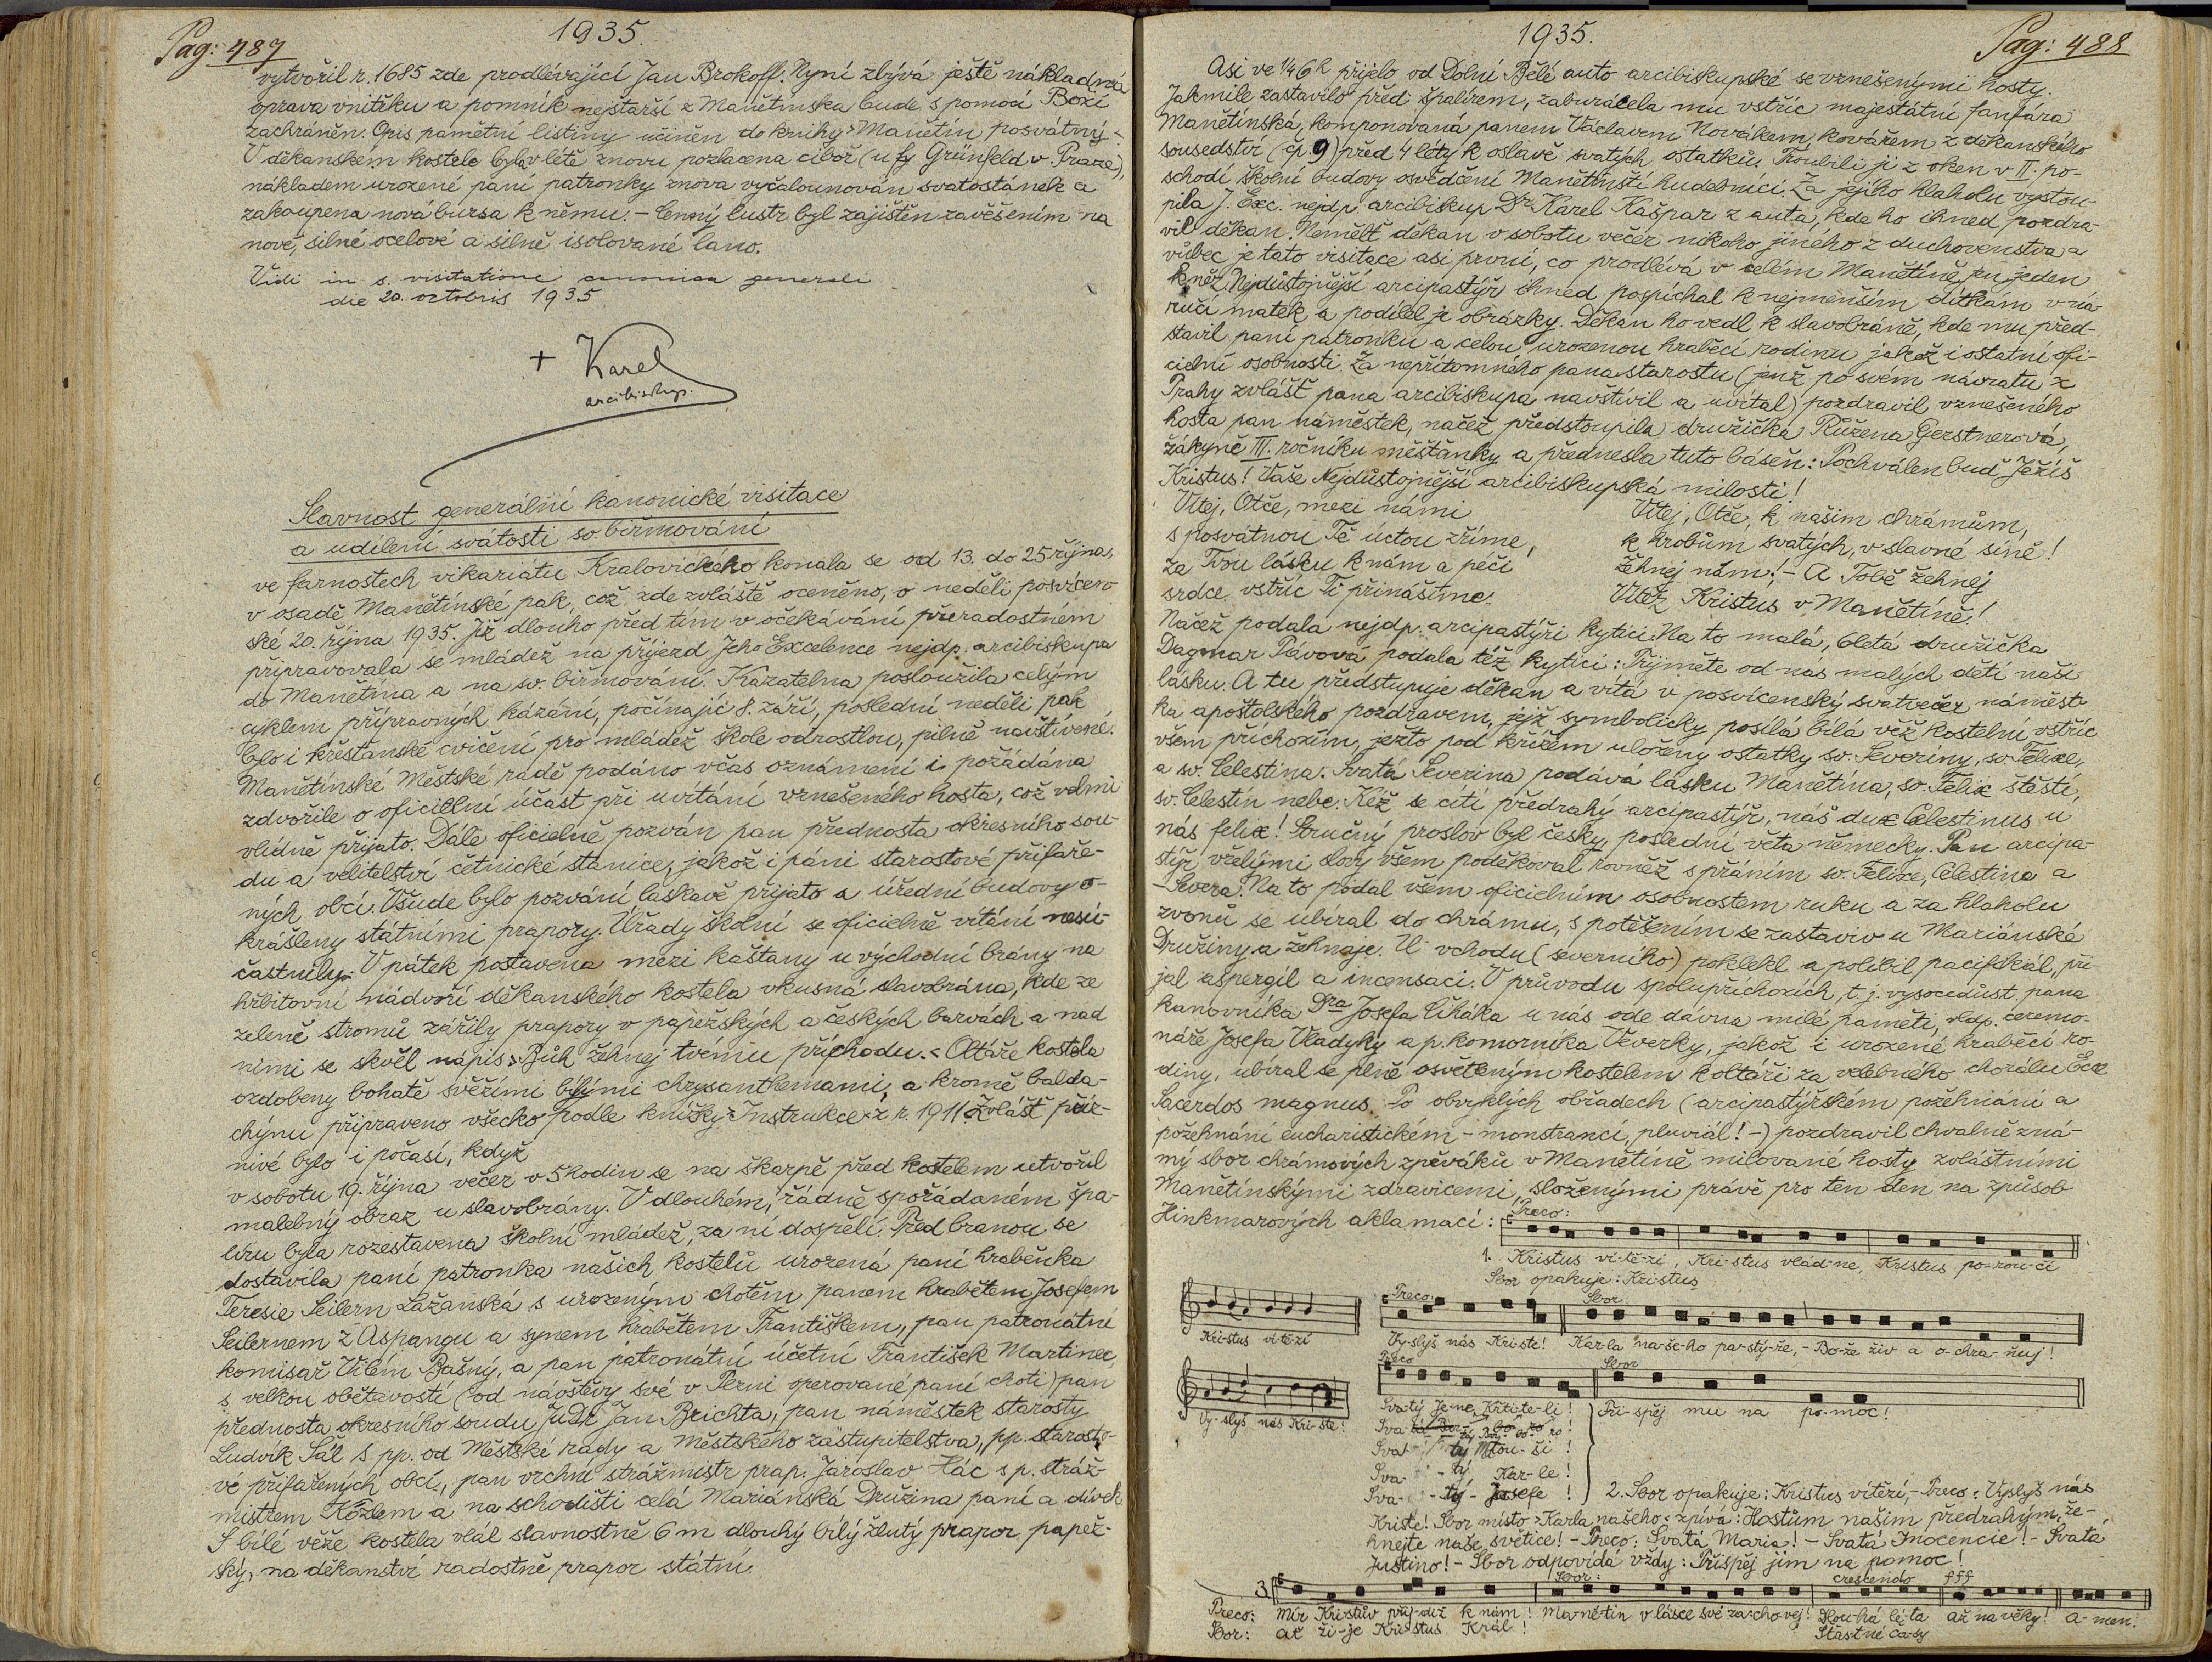 Pag: 487
1935.
vytvořil r. 1685 zde prodlévající Jan Brokoff. Nyní zbývá ještě nákladná
oprava vnitřku a pomník nejstarší z Manětínska bude s pomocí Boží
zachráněn. Opis pamětní listiny učiněn do knihy »Manětín posvátný«
V děkanském kostele byla v létě znovu pozlacena ciboř (u fy Grünfeld v Praze),
nákladem urozené paní patronky znova vyčalounován svatostánek a
zakoupena nová bursa k němu. – Cenný lustr byl zajištěn zavěšením na
nové, silné ocelové a silně isolované lano.
Vidi in s. visitatione canonica generali
die 20. octobris 1935
+ Karel
arcibiskup.
Slavnost generální kanonické visitace
a udílení svátosti sv. biřmování
ve farnostech vikariátu Kralovického konala se od 13. do 25 října,
v osadě Manětínské pak, což zde zvláště oceněno, o neděli posvícen-
ské 20. října 1935. Již dlouho před tím v očekávání přeradostném
připravovala se mládež na příjezd Jeho Excelence nejdp. arcibiskupa
do Manětína a na sv. biřmování. Kazatelna posloužila celým
cyklem přípravných kázání, počínajíc 8. září, poslední neděli pak
bylo i křesťanské cvičení pro mládež škole odrostlou, pilně navštívené.
Manětínské Městské radě podáno včas oznámení i požádána
zdvořile o oficielní účast při uvítání vznešeného hosta, což velmi
vlídně přijato. Dále oficielně pozván pan přednosta okresního sou-
du a velitelství četnické stanice, jakož i páni starostové přifaře-
ných obcí. Všude bylo pozvání laskavě přijato a úřední budovy o-
krášleny státními prapory. Úřady školní se oficielně vítání nesú-
častnily. V pátek postavena mezi kaštany u východní brány na
hřbitovní nádvoří děkanského kostela vkusná slavobrána, kde ze
zeleně stromů zářily prapory v papežských a českých barvách a nad
nimi se skvěl nápis: »Bůh žehnej tvému příchodu.« Oltáře kostela
ozdobeny bohatě svěžími bílými chrysanthemami, a kromě balda-
chýnu připraveno všecko podle knížky »Instrukce« z r. 1911. Zvlášť příz-
nivé bylo i počasí, když
v sobotu 19. října večer v 5 hodin se na škarpě před kostelem utvořil
malebný obraz u slavobrány. V dlouhém, řádně spořádaném špa-
líru byla rozestavena školní mládež, za ní dospělí. Před branou se
dostavila paní patronka našich kostelů urozená paní hraběnka
Teresie Seilern Lažanská s urozeným chotěm panem hrabětem Josefem
Seilernem z Aspangu a synem hrabětem Františkem, pan patronátní
komisař Vilém Bašný, a pan patronátní účetní František Martinec,
s velkou obětavostí (od návštěvy své v Plzni operované paní choti) pan
přednosta okresního soudu JuDr Jan Brichta, pan náměstek starosty
Ludvík Sál s pp. od Městské rady a Městského zastupitelstva, pp. starosto-
vé přifařených obcí, pan vrchní strážmistr prap. Jaroslav Hác s p. stráž-
mistrem Kozlem a na schodišti celá Mariánská Družina paní a dívek
S bílé věže kostela vlál slavnostně 6 m dlouhý bílý žlutý prapor papež-
ský, na děkanství radostně prapor státní.
1935.
Pag: 488
Asi ve ¼6h přijelo od Dolní Bělé auto arcibiskupské se vznešenými hosty.
Jakmile zastavilo před špalírem, zaburácela mu vstříc majestátní fanfára
Manětínská, komponovaná panem Václavem Novákem, kovářem z děkanského
sousedství (čp 9) před 4 léty k oslavě svatých ostatků. Troubili ji z oken v II. po-
schodí školní budovy osvědčení Manětínští hudebníci. Za jejího hlaholu vystou-
pila J. Exc. nejdp. arcibiskup Dr. Karel Kašpar z auta, kde ho ihned pozdra-
vil děkan. Neměltě děkan v sobotu večer nikoho jiného z duchovenstva a
vůbec je tato visitace asi první, co prodlévá v celém Manětíně jen jeden
kněz. Nejdůstojnější arcipastýř ihned pospíchal k nejmenším dítkám v ná-
ručí matek a podělil je obrázky. Děkan ho vedl k slavobráně, kde mu před-
stavil paní patronku a celou urozenou hraběcí rodinu jakož i ostatní ofi-
cielní osobnosti. Za nepřítomného pana starostu (jenž po svém návratu z
Prahy zvlášť pana arcibiskupa navštívil a uvítal) pozdravil vznešeného
hosta pan náměstek, načež předstoupila družička Růžena Gerstnerová,
žákyně III. ročníku měšťanky a přednesla tuto báseň: Pochválen buď Ježíš
Kristus! Vaše Nejdůstojnější arcibiskupská milosti!
Vítej, Otče, mezi námi
s posvátnou Tě úctou zříme,
za Tvou lásku k nám a péči
srdce vstříc Ti přinášíme.
Vítej, Otče, k našim chrámům,
k hrobům svatých, v slavné síně!
Žehnej nám! – A Tobě žehnej
Vítěz Kristus v Manětíně!
Načež podala nejdp. arcipastýři kytici. Na to malá, 6letá družička
Dagmar Pávová podala též kytici: Přijměte od nás malých dětí naši
lásku. A tu předstupuje děkan a vítá v posvícenský svatvečer náměst-
ka apoštolského pozdravem, jejž symbolicky posílá bílá věž kostelní vstříc
všem příchozím, ježto pod křížem uloženy ostatky sv. Severiny, sv. Felixe,
a sv. Celestina. Svatá Severina podává lásku Manětína, sv. Felix štěstí,
sv. Celestin nebe. Kéž se cítí předrahý arcipastýř, náš dux Celestinus u
nás felix! Stručný proslov byl česky, poslední věta německy. Pan arcipa-
stýř vřelými slovy všem poděkoval rovněž s přáním sv. Felixe, Celestina a
Severa. Na to podal všem oficielním osobnostem ruku a za hlaholu
zvonů se ubíral do chrámu, s potěšením se zastaviv u Mariánské
Družiny a žehnaje. U vchodu (severního) poklekl a políbil pacifikál, při-
jal aspergil a incensaci. V průvodu spolupříchozích, t. j. vysocedůst. pana
kanovníka Dra Josefa Čiháka u nás ode dávna milé paměti, vldp. ceremo-
náře Josefa Vladyky a p. komorníka Veverky, jakož i urozené hraběcí ro-
diny, ubíral se plně osvětleným kostelem k oltáři za velebného chorálu Ecce
Sacerdos magnus. Po obvyklých obřadech (arcipastýřském požehnání a
požehnání eucharistickém – monstrancí, pluviál! –) pozdravil chvalně zná-
mý sbor chrámových zpěváků v Manětíně milované hosty zvláštními
Manětínskými zdravicemi, složenými právě pro ten den na způsob
Hinkmarových aklamací: Preco:
1. Kristus ví-tě-zí, Kri-stus vlád-ne, Kristus po-rou-čí
Sbor opakuje: Kristus
Preco: Sbor
Kri-stus ví-tě-zí Vy-slyš nás Kri-ste! Kar-la na-še-ho pa-stý-ře, – Bo-že živ a o-chra-ňuj!
Preco Sbor
Vy-slyš nás Kri-ste! Sva-tý Ja-ne, Křti-te-li! Při-spěj mu na po-moc!
Sva-
Sva- tý Mlou-ši !
Sva- - tý Kar-le!
Sva- - tý - Josefe ! 2. Sbor opakuje: Kristus vítězí, – Preco: Vyslyš nás
Kriste! Sbor místo »Karla našeho« zpívá: Hostům našim předrahým že-
hnejte naše světice! – Preco: Svatá Maria! – Svatá Inocencie! – Svatá
Justino! – Sbor odpovídá vždy: Přispěj jim na pomoc!
3. Sbor: crescendo fff
Preco: Mír Kri-stův přij-diž k nám! Ma-ně-tín v lásce své za-cho-vej! Dlou-há lé-ta až na věky! A-men.
Sbor: ať ži-je Kri-stus Král! Šťast-né ča-sy